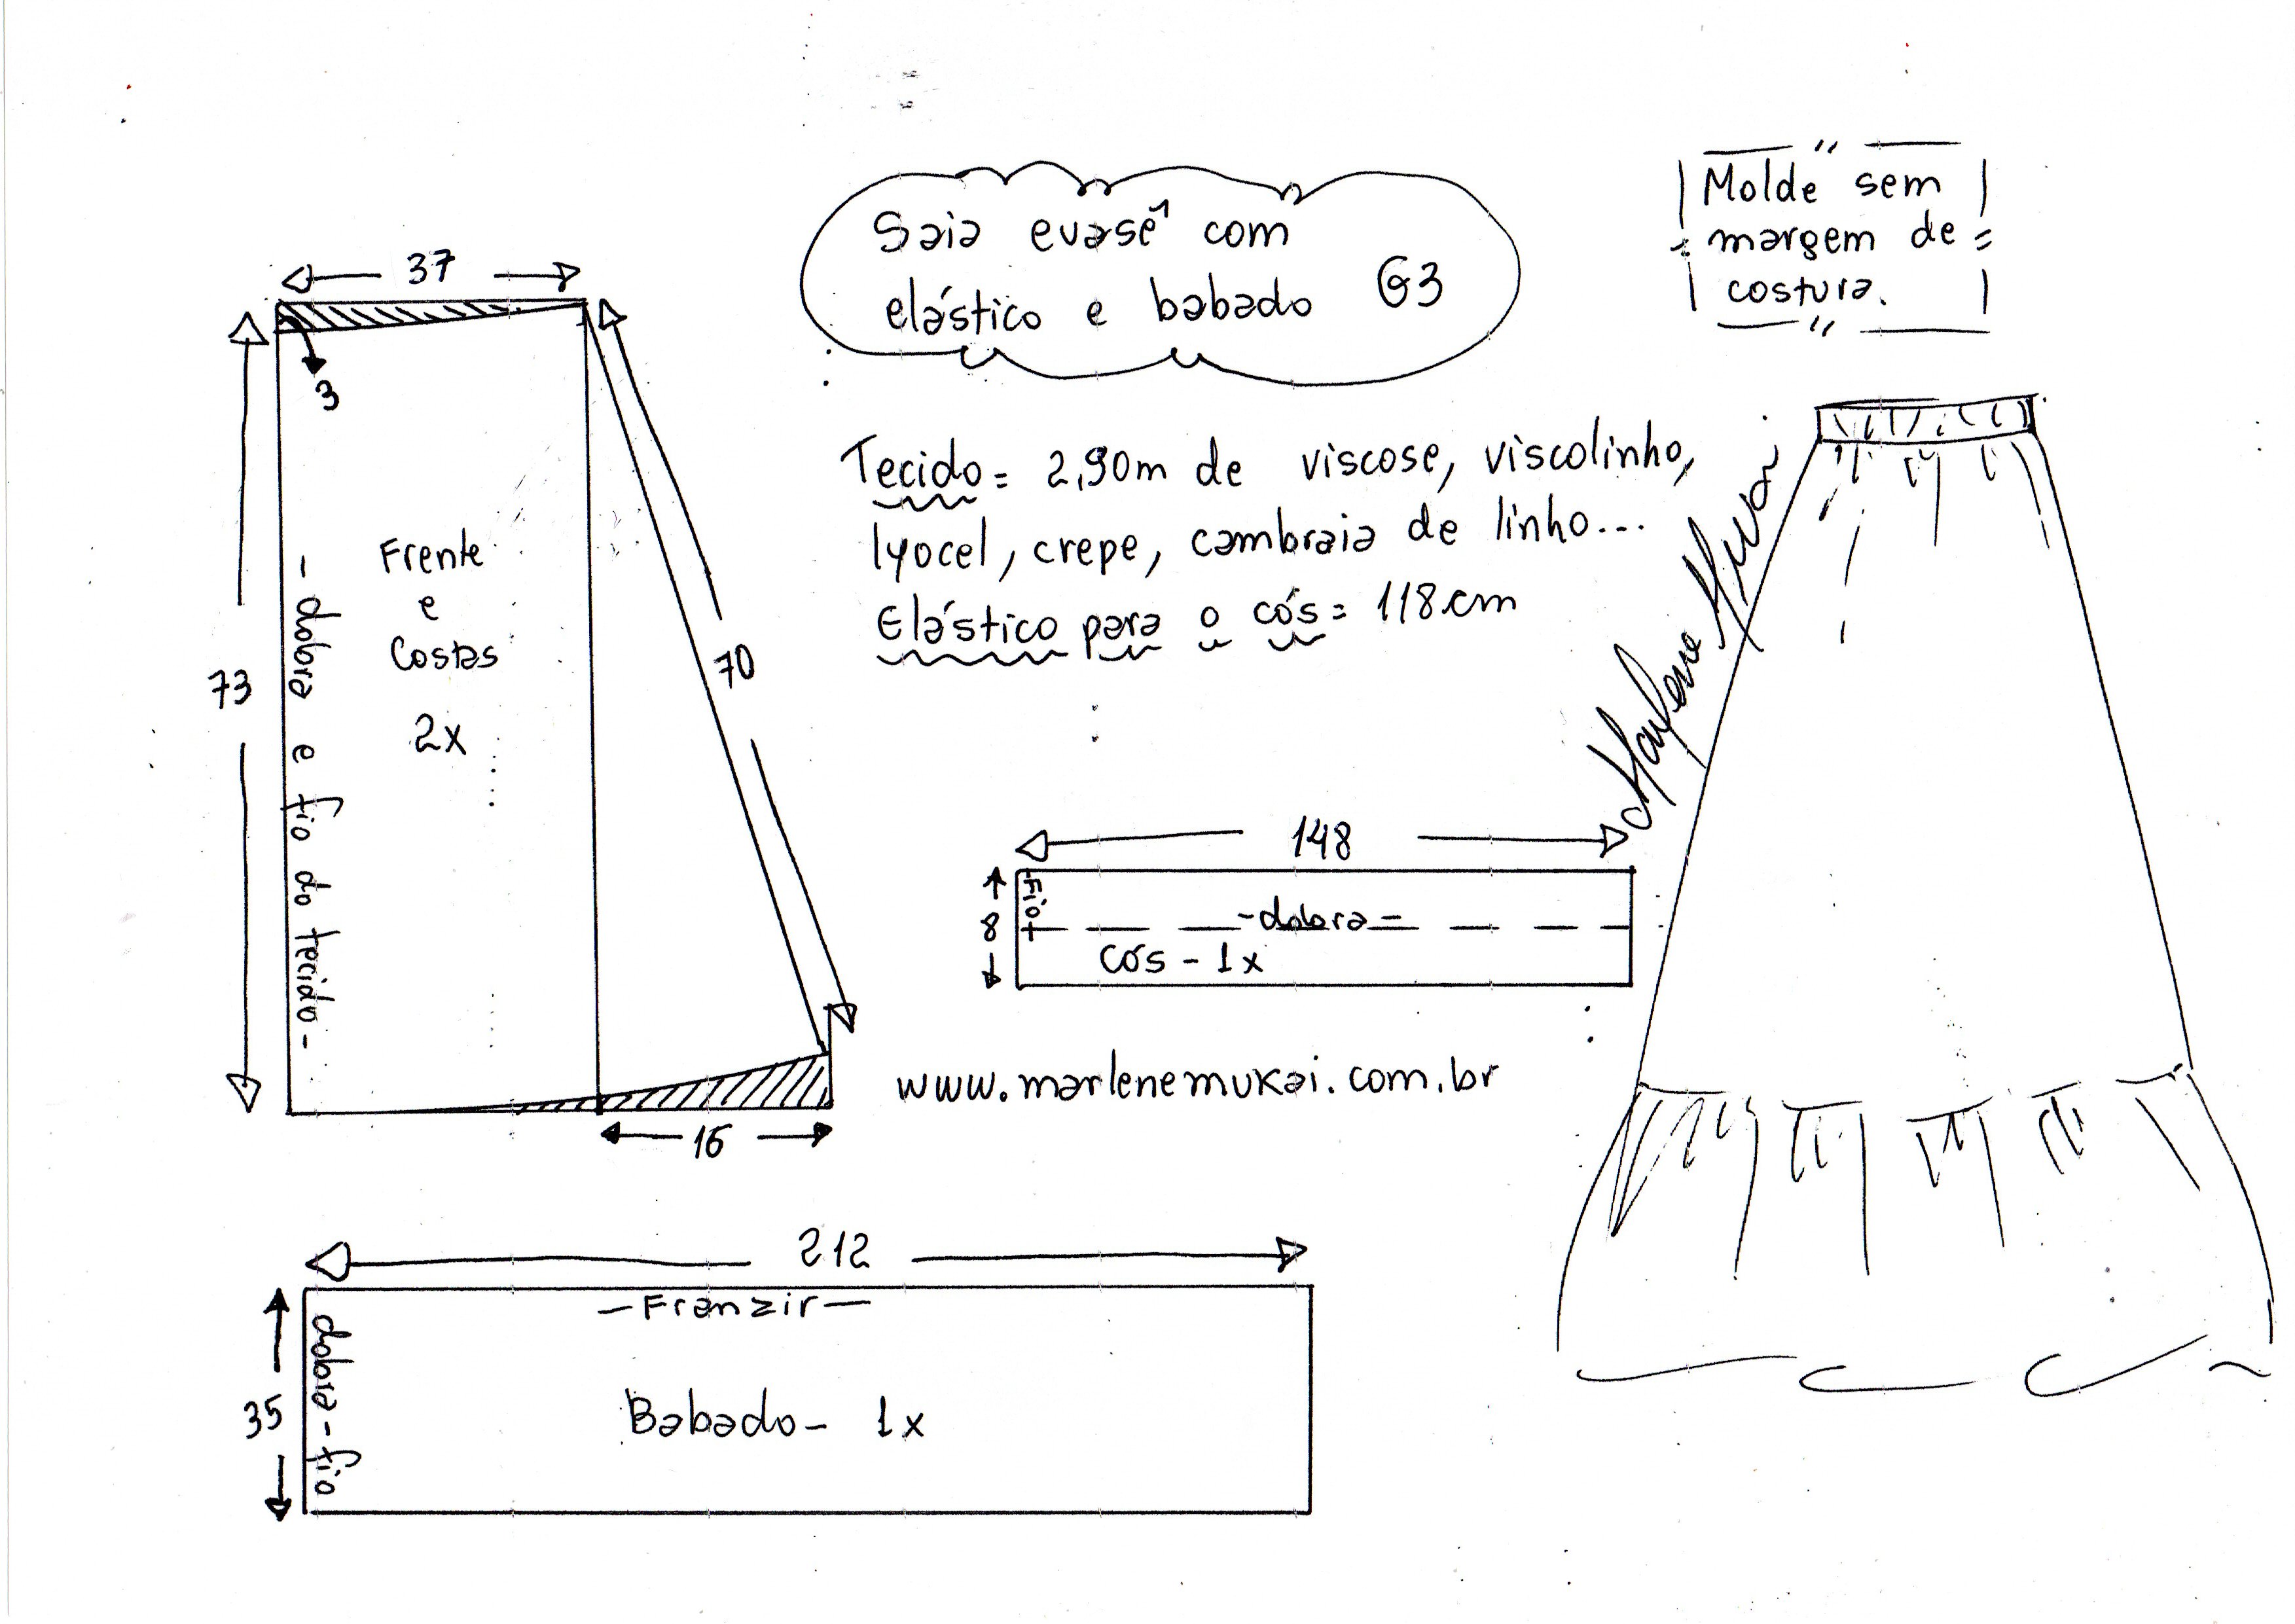 Saia evasê com
elástico e babado G3
Molde sem
margem de
costura.
37
3
73
70
- dobra e fio do tecido -
Frente
e
Costas
2x
16
Tecido = 2,90m de viscose, viscolinho,
lyocel, crepe, cambraia de linho...
Elástico para o cós = 118cm
Marlene Mukai
148
8
Fio
-dobra=
Cós - 1x
www.marlenemukai.com.br
212
35
dobra - fio
- Franzir -
Babado - 1x